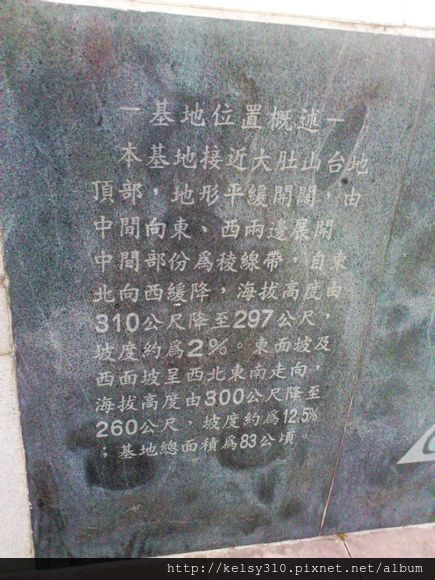 －基地位置概述－
本基地接近大肚山台地
頂部，地形平緩開闊，由
中間向東、西兩邊展開
中間部份為稜線帶，自東
北向西緩降，海拔高度由
310公尺降至297公尺，
坡度約為2%。東面坡及
西面坡呈西北東南走向，
海拔高度由300公尺降至
260公尺，坡度約為12.5%
；基地總面積為83公頃。
http://kelsy310.pixnet.net/album